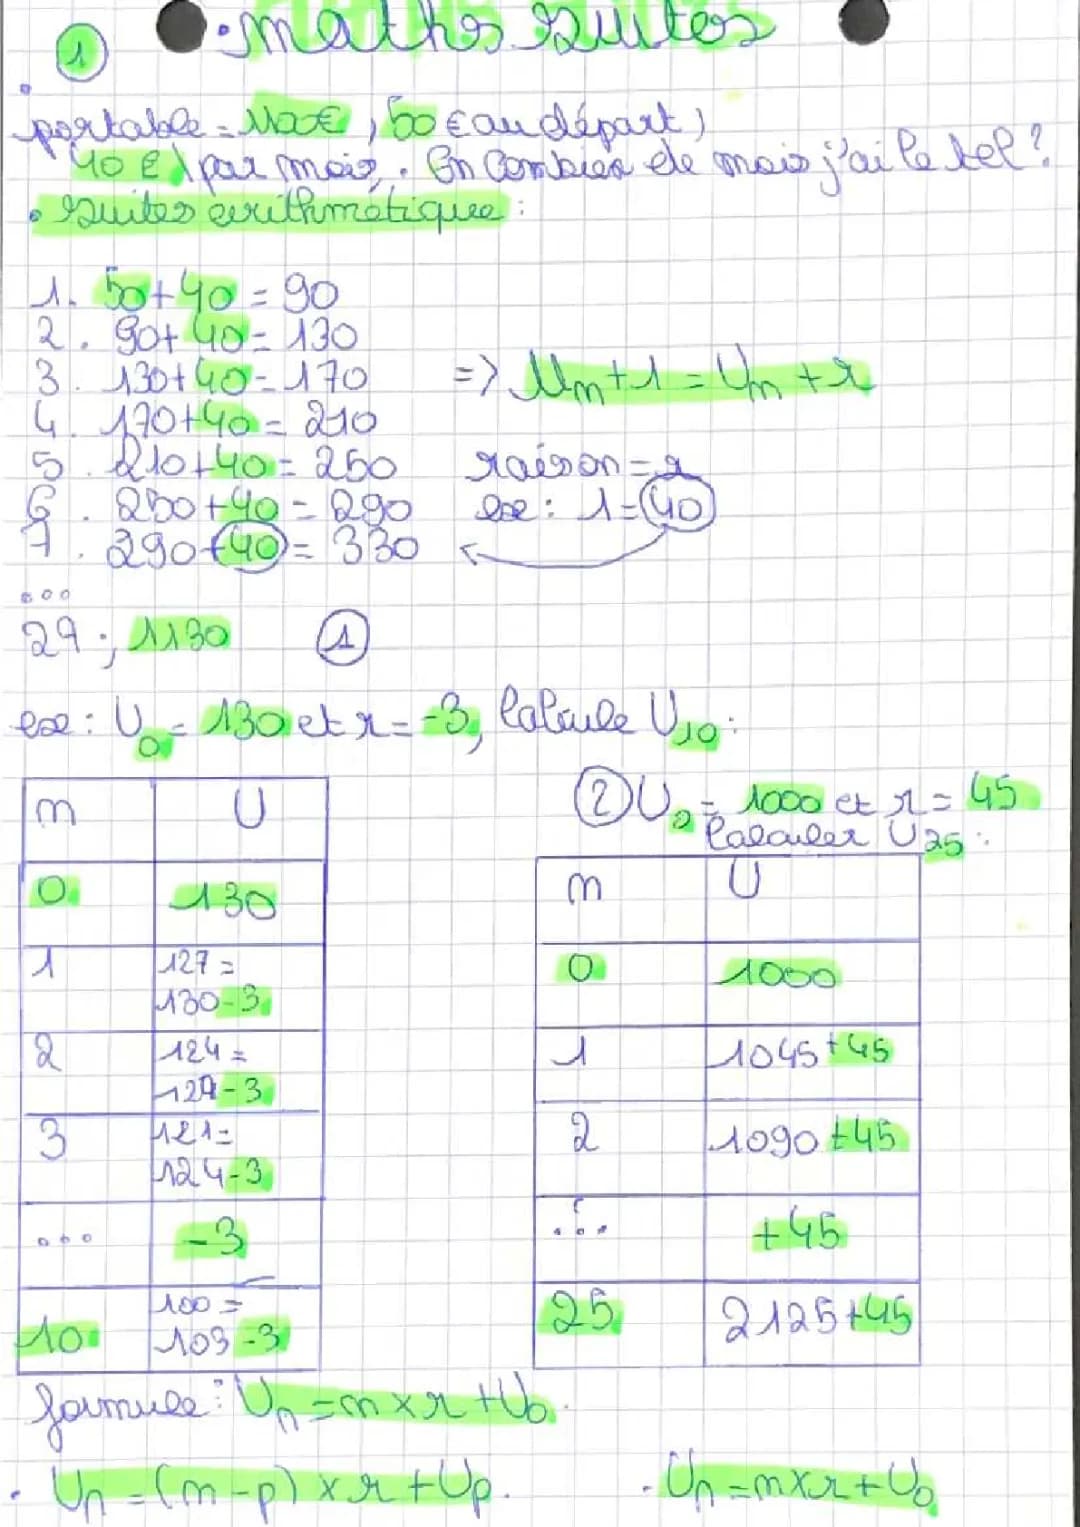 1
• maths suites
portable = 1100€, 50 € au départ,
40 € par mois. En Combien de mois j'ai le tel?
• Suites arithmétique :
1. 50+40 = 90
2. 90+40 = 130
3. 130+40 = 170 => Un+1 = Un + r
4. 170+40 = 210
5. 210+40 = 250 raison = r
6. 250+40 = 290 ex: 1 = 40
7. 290+40 = 330
...
29 ; 1130 1
ex: U0 = 130 et r = -3, Calcule U10 :
n U
0 130
1 127 =
130-3
2 124 =
127-3
3 121 =
124-3
... -3
10 100 =
103-3
2 U0 = 1000 et r = 45
Calculer U25 :
n U
0 1000
1 1045+45
2 1090+45
... +45
25 2125+45
formule : Un = n x r + U0
• Un = (n-p) x r + Up. - Un = n x r + U0